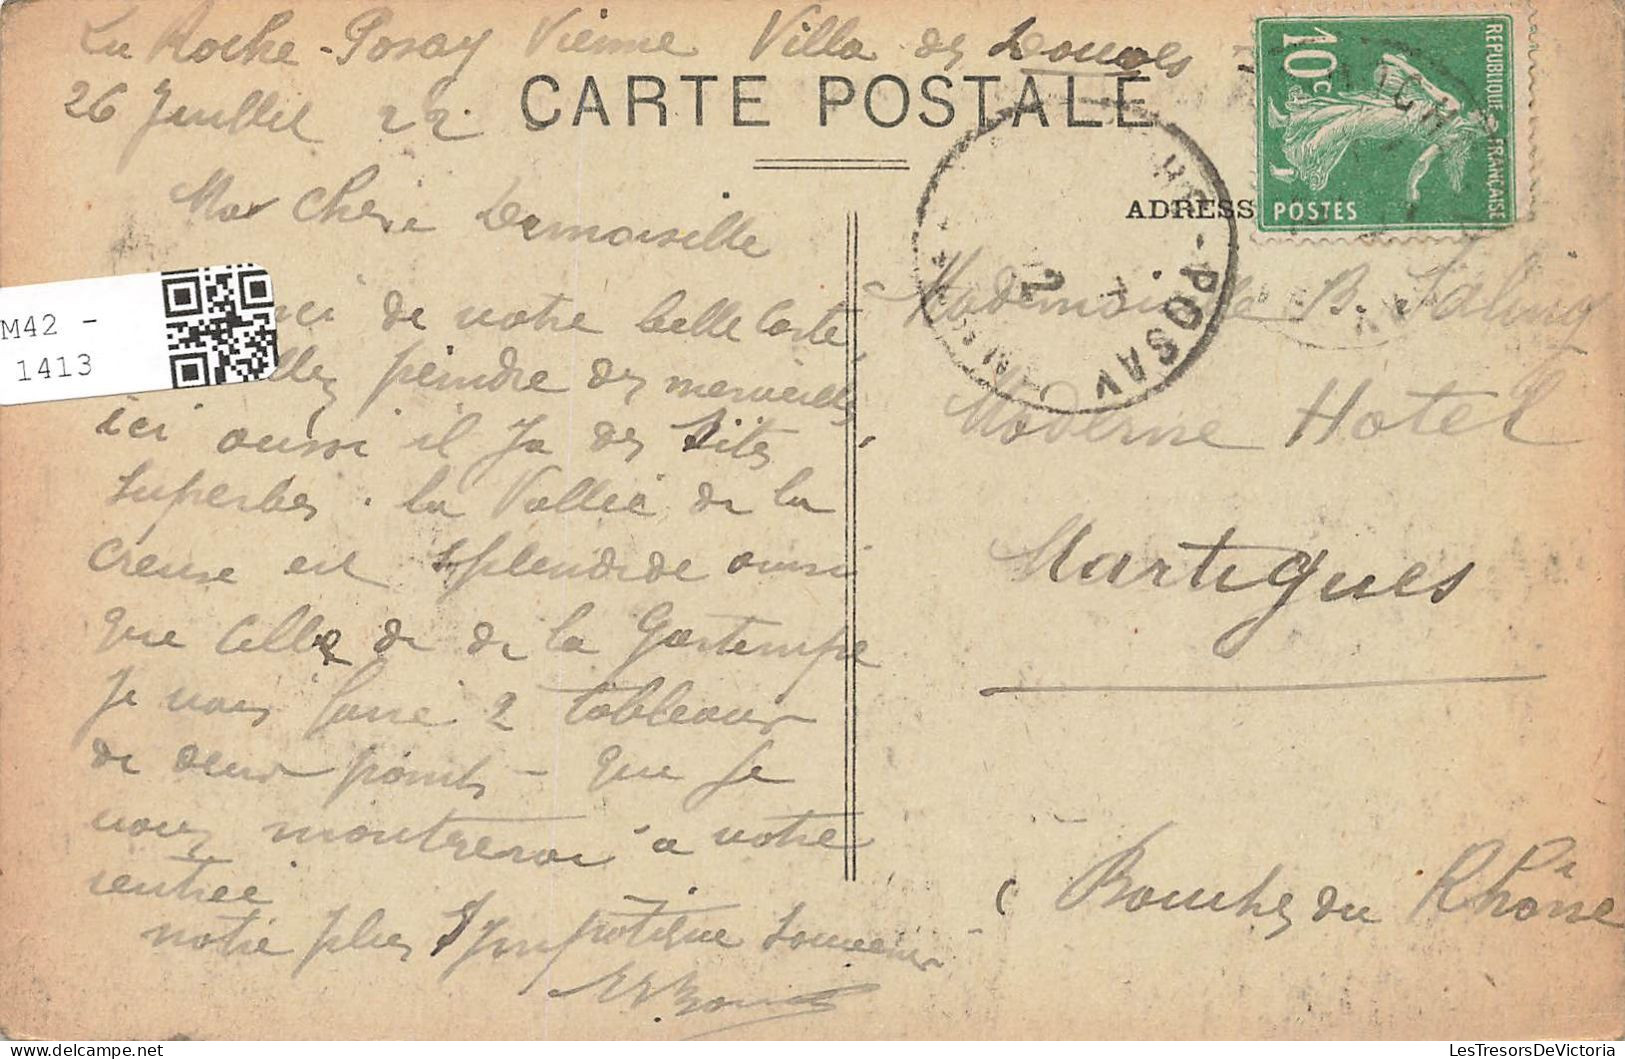 La Roche-Posay Vienne Villa des
26 Juillet 22.
CARTE POSTALE
Ma Chère Demoiselle
de votre belle Carte,
peindre des merveilles
ici aussi il ya des Sites
superbes. la Vallée de la
Creuse est splendide aussi
que Celle de de la Gartempe
Je vous 2 tableaux
de deux points - que Je
vous montrerai à votre
rentrée
notre plus Sympatique Souvenir
M42 -
1413
RÉPUBLIQUE FRANÇAISE
10c
POSTES
ADRESS
POSAY
Mademoiselle B.
Moderne Hotel
Martigues
Bouches du Rhône
LesTresorsDeVictoria
www.delcampe.net